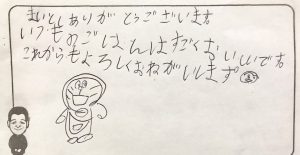 まいとしありがとうございます
いつものごはんはすごくおいしいです
これからもよろしくおねがいします